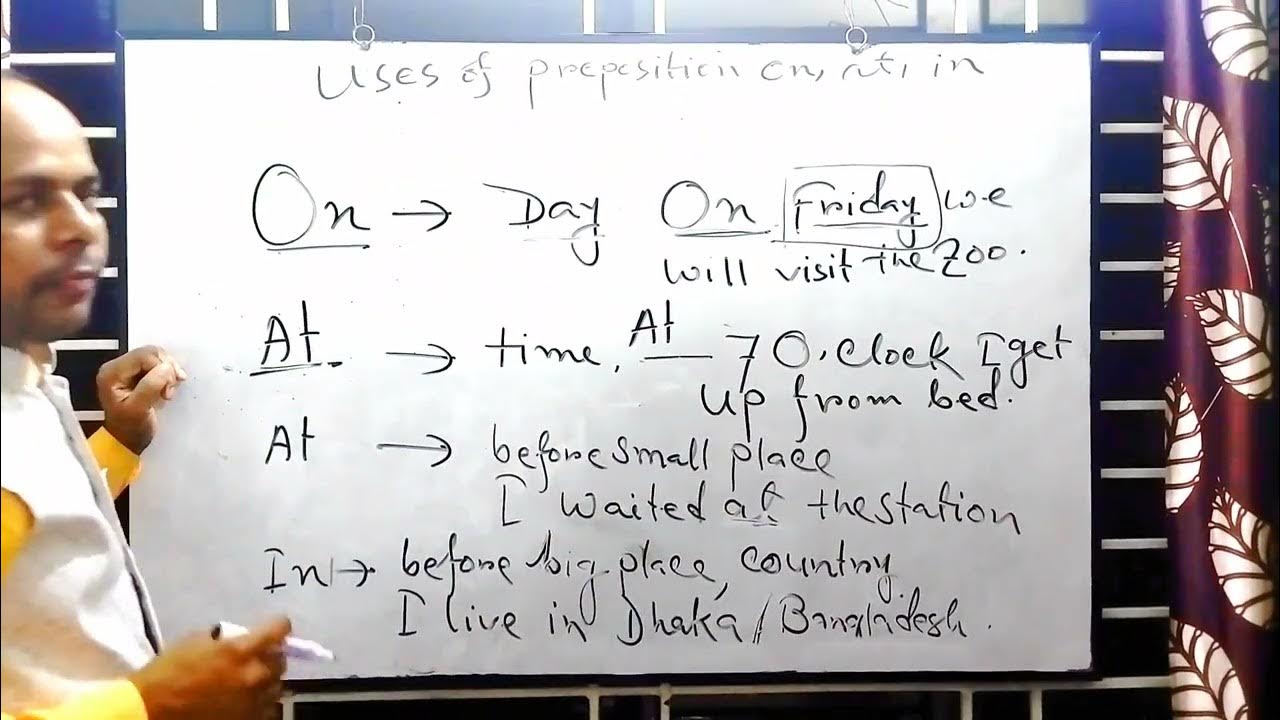 Uses of preposition on, at, in
On → Day On Friday we
will visit the Zoo.
At → time. At 7 O. Clock I get
up from bed.
At → before small place
I waited at the station
In → before big place, country.
I live in Dhaka / Bangladesh.